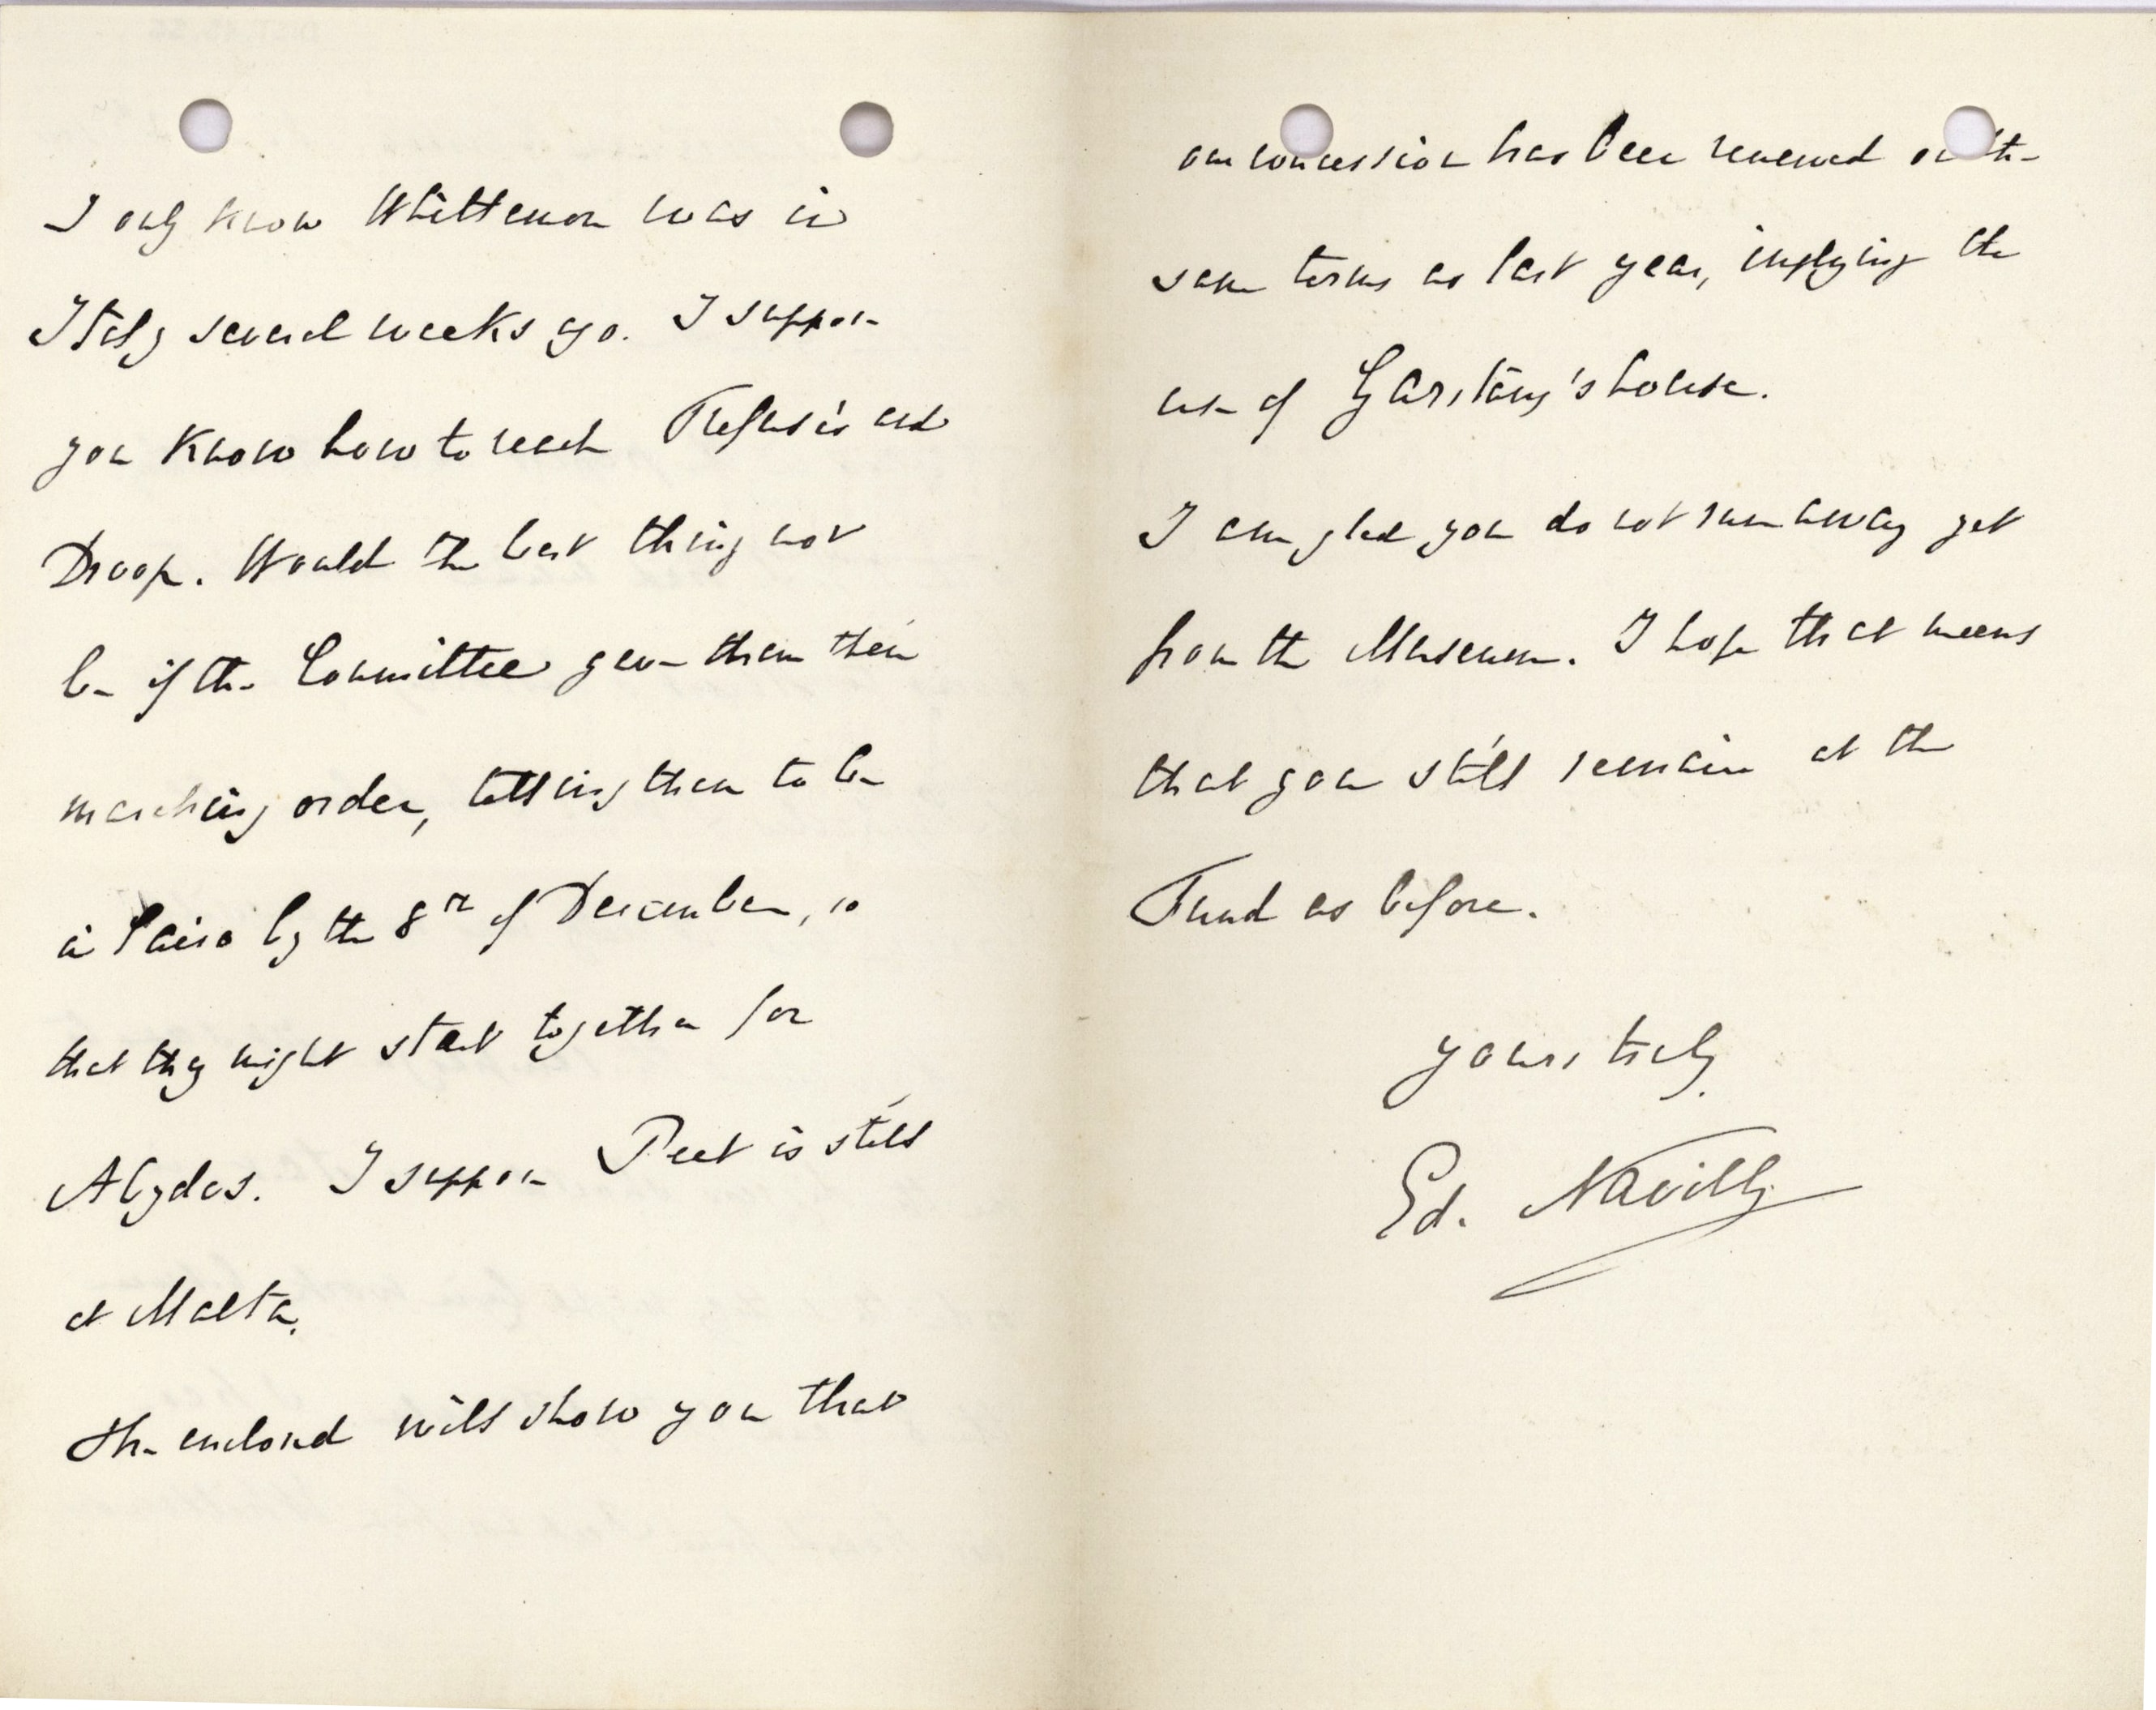 I only know Whittemore was in
Italy several weeks ago. I suppose
you know how to reach Trefusis and
Droop. Would the best thing not
be if the Committee gave them their
marching order, telling them to be
in Cairo by the 8th of December, so
that they might start together for
Abydos. I suppose Peet is still
at Malta.
The enclosed will show you that
our concession has been renewed on the
same terms as last year, implying the
use of Garstang's house.
I am glad you do not run away yet
from the Museum. I hope that means
that you still remain at the
Fund as before.
yours truly.
Ed. Naville